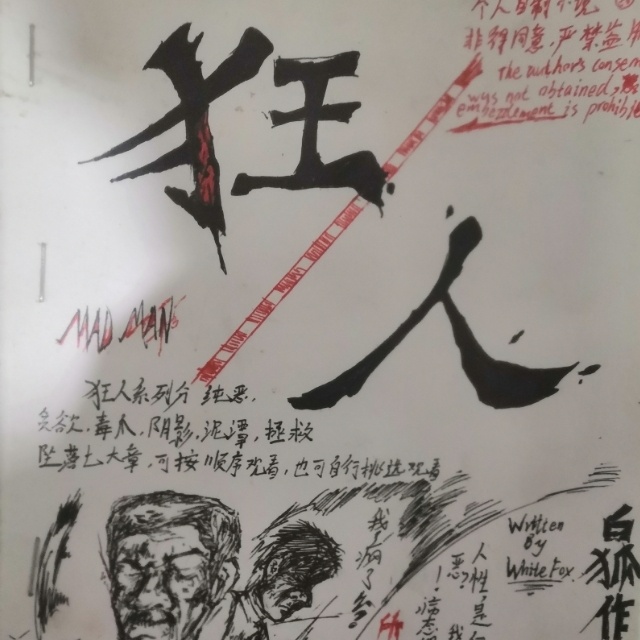 狂人
个人自制
非得同意,严禁盗用
The author's consent
was not obtained,
is prohibite
MAD MAN
狂人系列分 纯恶,
贪欲,毒爪,阴影,泥潭,拯救
坠落七大章,可按顺序观看,也可自行挑选观看
我了病了
人性是
恶!
Written
By
White Fox
白狐作